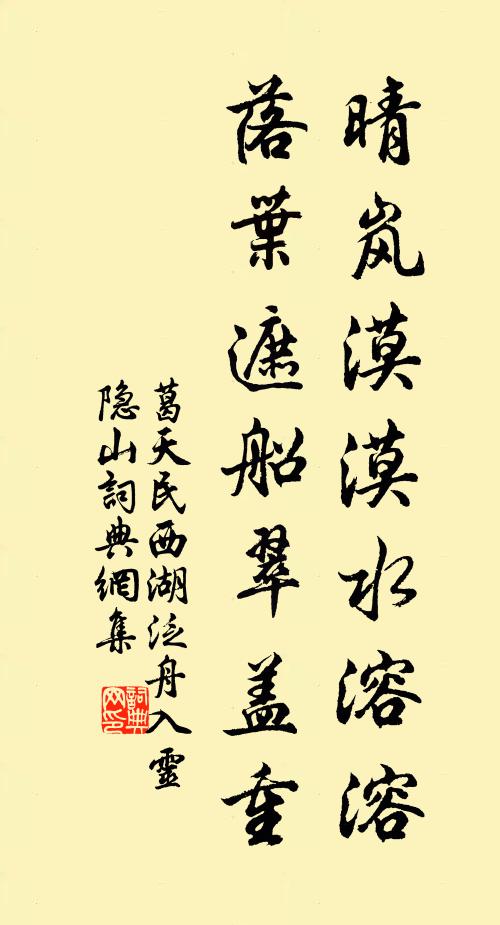 晴岚漠漠水溶溶
落葉遮船翠盖重
葛天民西湖泛舟入靈
隐山詞典網集
詞典网印